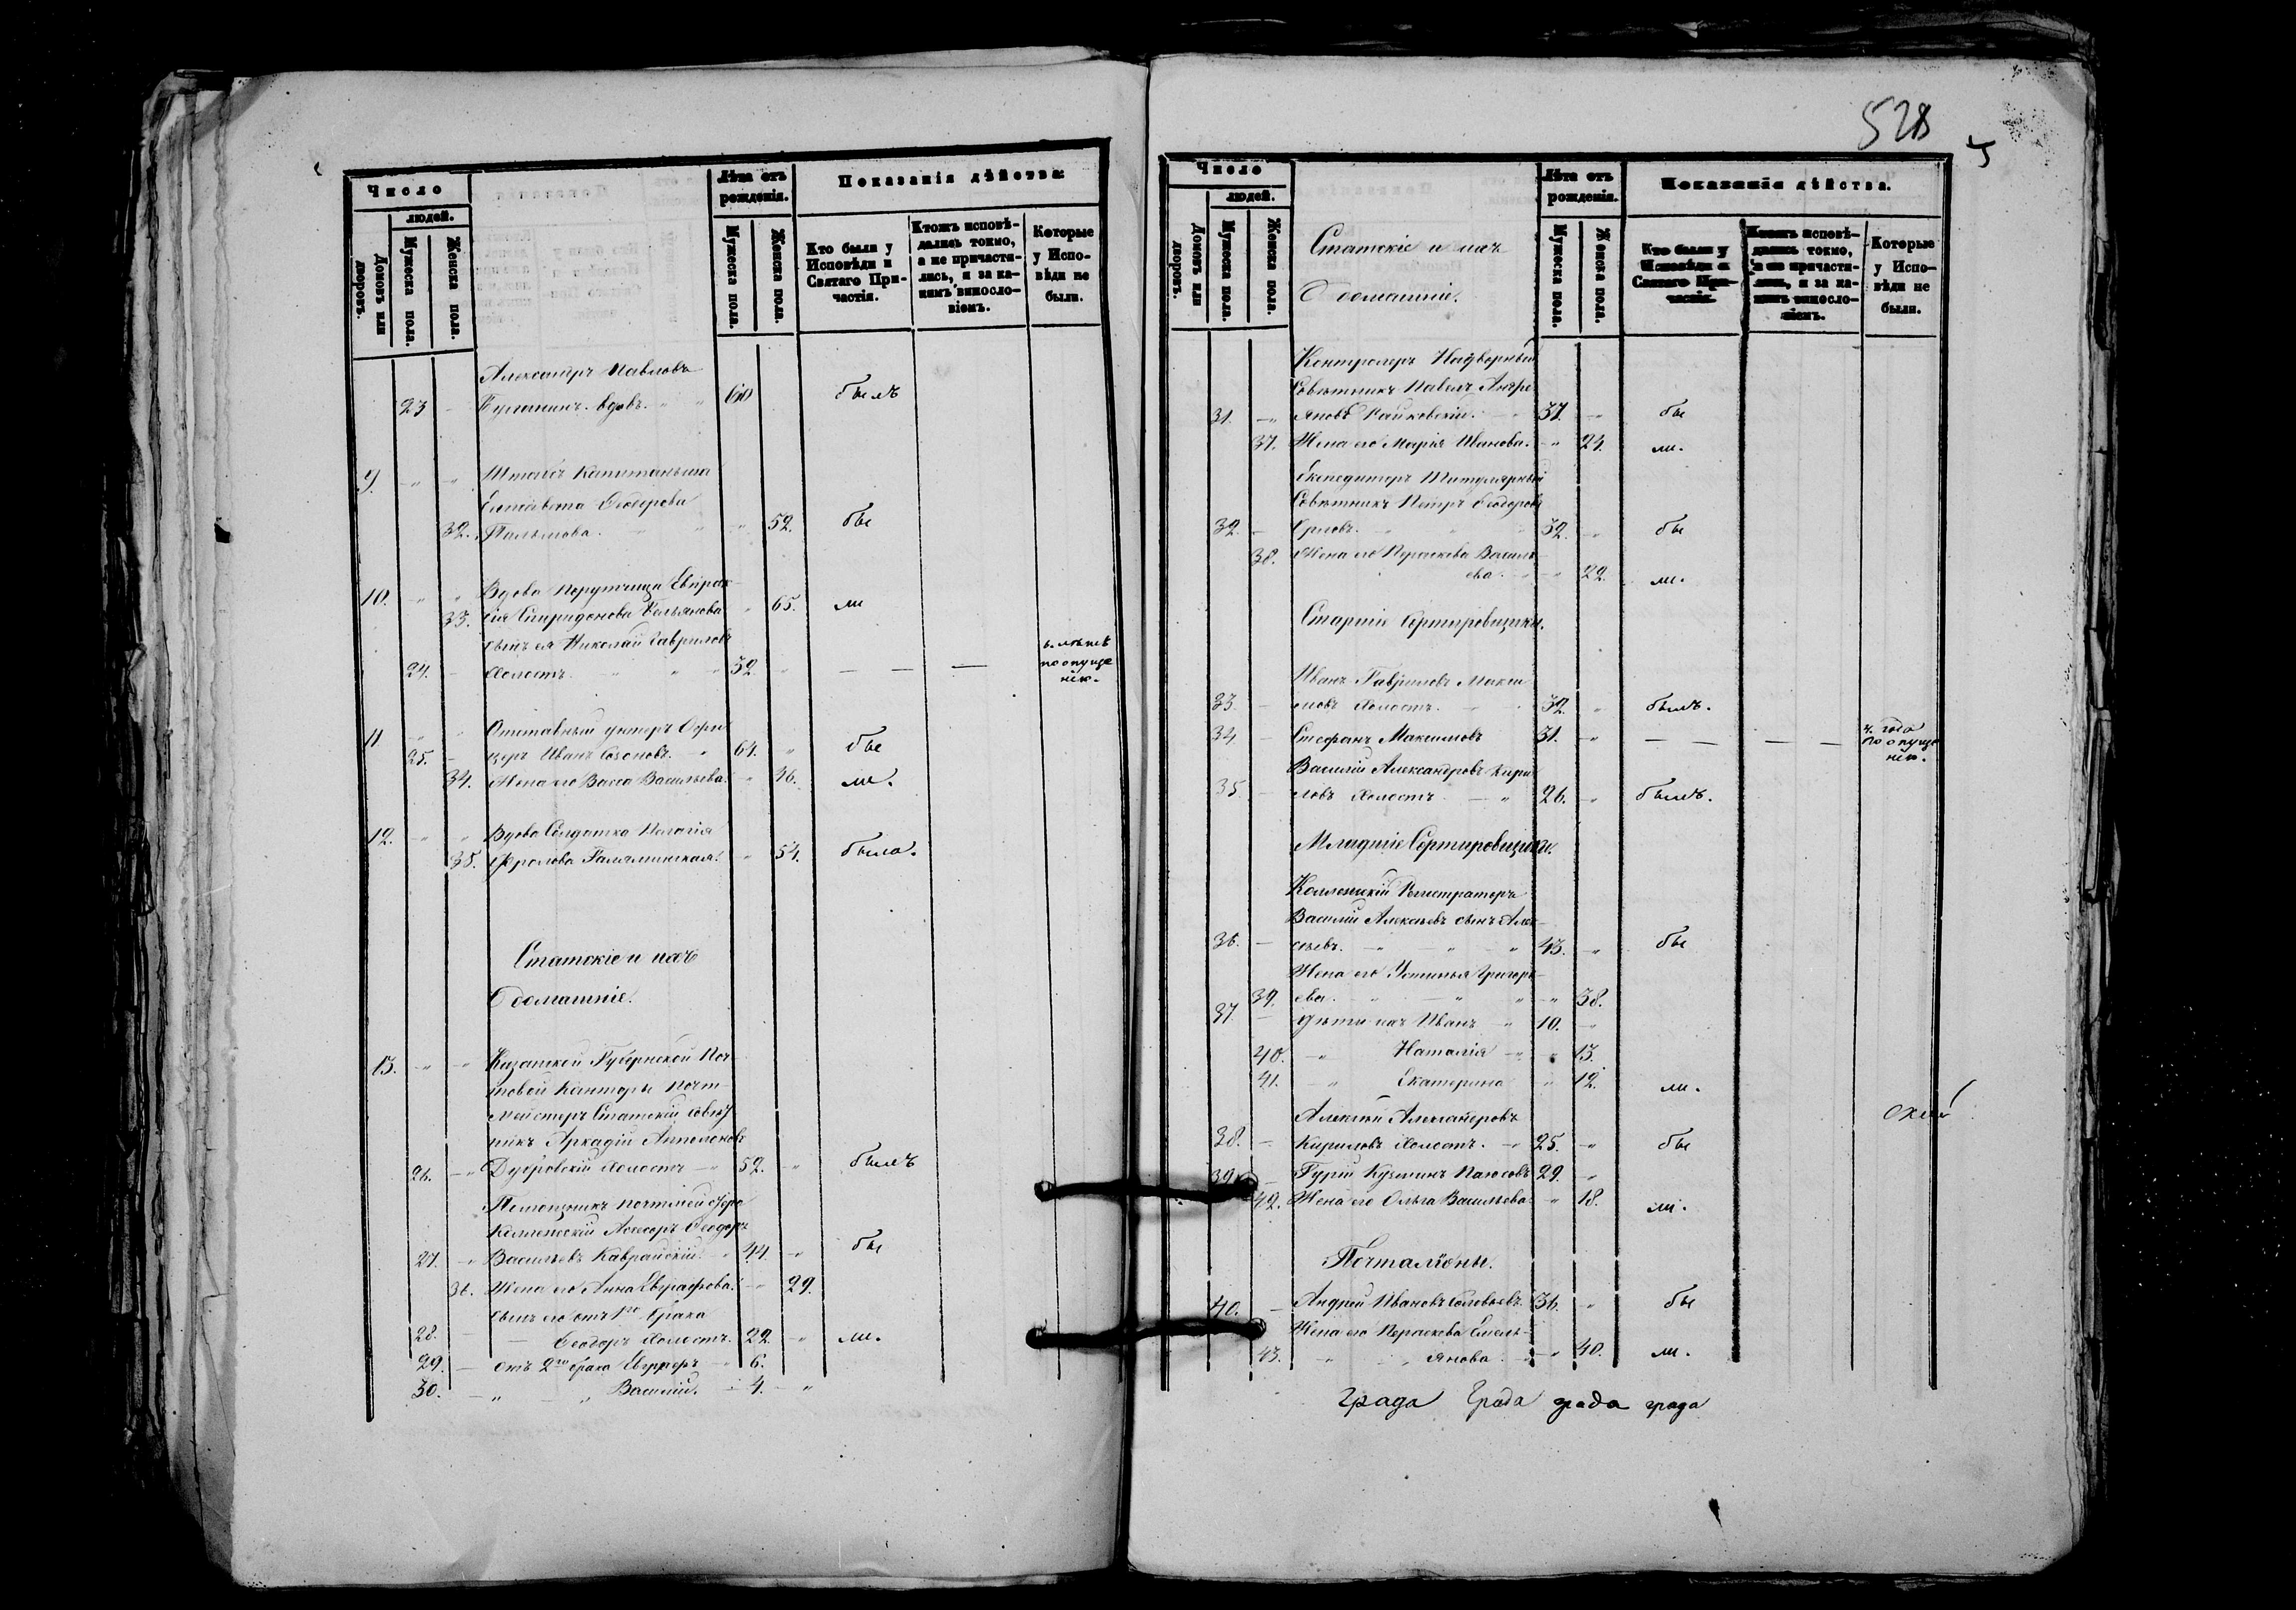 Число
людей.
Домовъ или дворовъ.
Мужеска пола.
Женска пола.
Лѣта отъ рожденія.
Мужеска пола.
Женска пола.
Показанія дѣйства.
Кто были у Исповѣди и Святаго Причастія.
Ктожъ исповѣдались токмо, а не причастились, и за какимъ винословіемъ.
Которые у Исповѣди не были.
Александръ Павловъ
23 вдовъ. 60 былъ
9. Штабсъ Капитанша
Елисавета Ѳеодорова
32. 52. бы
10. Вдова Порутчица Евпрак
33. сія Спиридонова 65. ли
сынъ ея Николай Гавриловъ
24. Холостъ 32. — — — по опуще
нію.
11 Отставный унтеръ Офи
25. церъ Иванъ 61. бы
34. Жена его Васса Васильева. 36. ли.
12. Вдова Солдатка Пелагія
35. Фролова 54. была.
Статскіе и ихъ
Домашніе.
13. Казанской Губернской Поч
товой Канторы Почт
мейстеръ Статскій совѣт
никъ Аркадій Аполоновъ
26. Дубровскій Холостъ 52. былъ
Помощникъ почтмейстера
Коллежскій Асессоръ Ѳеодоръ
27. Васильевъ 44. бы
36. Жена его Анна Евграфова. 29.
Сынъ его отъ 1го брака
28. Ѳеодоръ Холостъ. 22. ли.
29. отъ 2го брака 6.
30. Василій. 4.
528
Число
людей.
Домовъ или дворовъ.
Мужеска пола.
Женска пола.
Статскіе и ихъ
Домашніе.
Лѣта отъ рожденія.
Мужеска пола.
Женска пола.
Показанія дѣйства.
Кто были у Исповѣди и Святаго Причастія.
Ктожъ исповѣдались токмо, а не причастились, и за какимъ винословіемъ.
Которые у Исповѣди не были.
Контролеръ Надворный
Совѣтникъ Павелъ Андре
31. яновъ 37. бы
37. Жена его Марія Иванова. 24. ли.
Експедиторъ Титулярный
Совѣтникъ Петръ Ѳеодоровъ
32. Орловъ. 32. бы
38. Жена его Параскева Василь
ева. 22. ли.
Старшіе Сортировщики.
Иванъ Гавриловъ Макси
33. мовъ Холостъ. 32. былъ.
34. Стефанъ Максимовъ 31. — — — — 4. года
по опуще
нію.
Василій Александровъ Кири
35. ловъ Холостъ 26. былъ.
Младшіе Сортировщики.
Коллежскій Регистраторъ
Василій Алексѣевъ сынъ Алек
36. сѣевъ. 43. бы
Жена его Устинья Григорь
39. ева. 38.
37. Дѣти ихъ Иванъ 10.
40. Наталія 13.
41. Екатерина 12. ли.
Алексѣй Александровъ
38. Кириловъ Холостъ. 25. бы
39. Гурій Кузминъ 29.
42. Жена его Ольга Васильева. 18. ли.
Почталіоны.
40. Андрей Ивановъ Соловьевъ. 36. бы
Жена его Параскева Емель
43. янова. 40. ли.
града Града града града